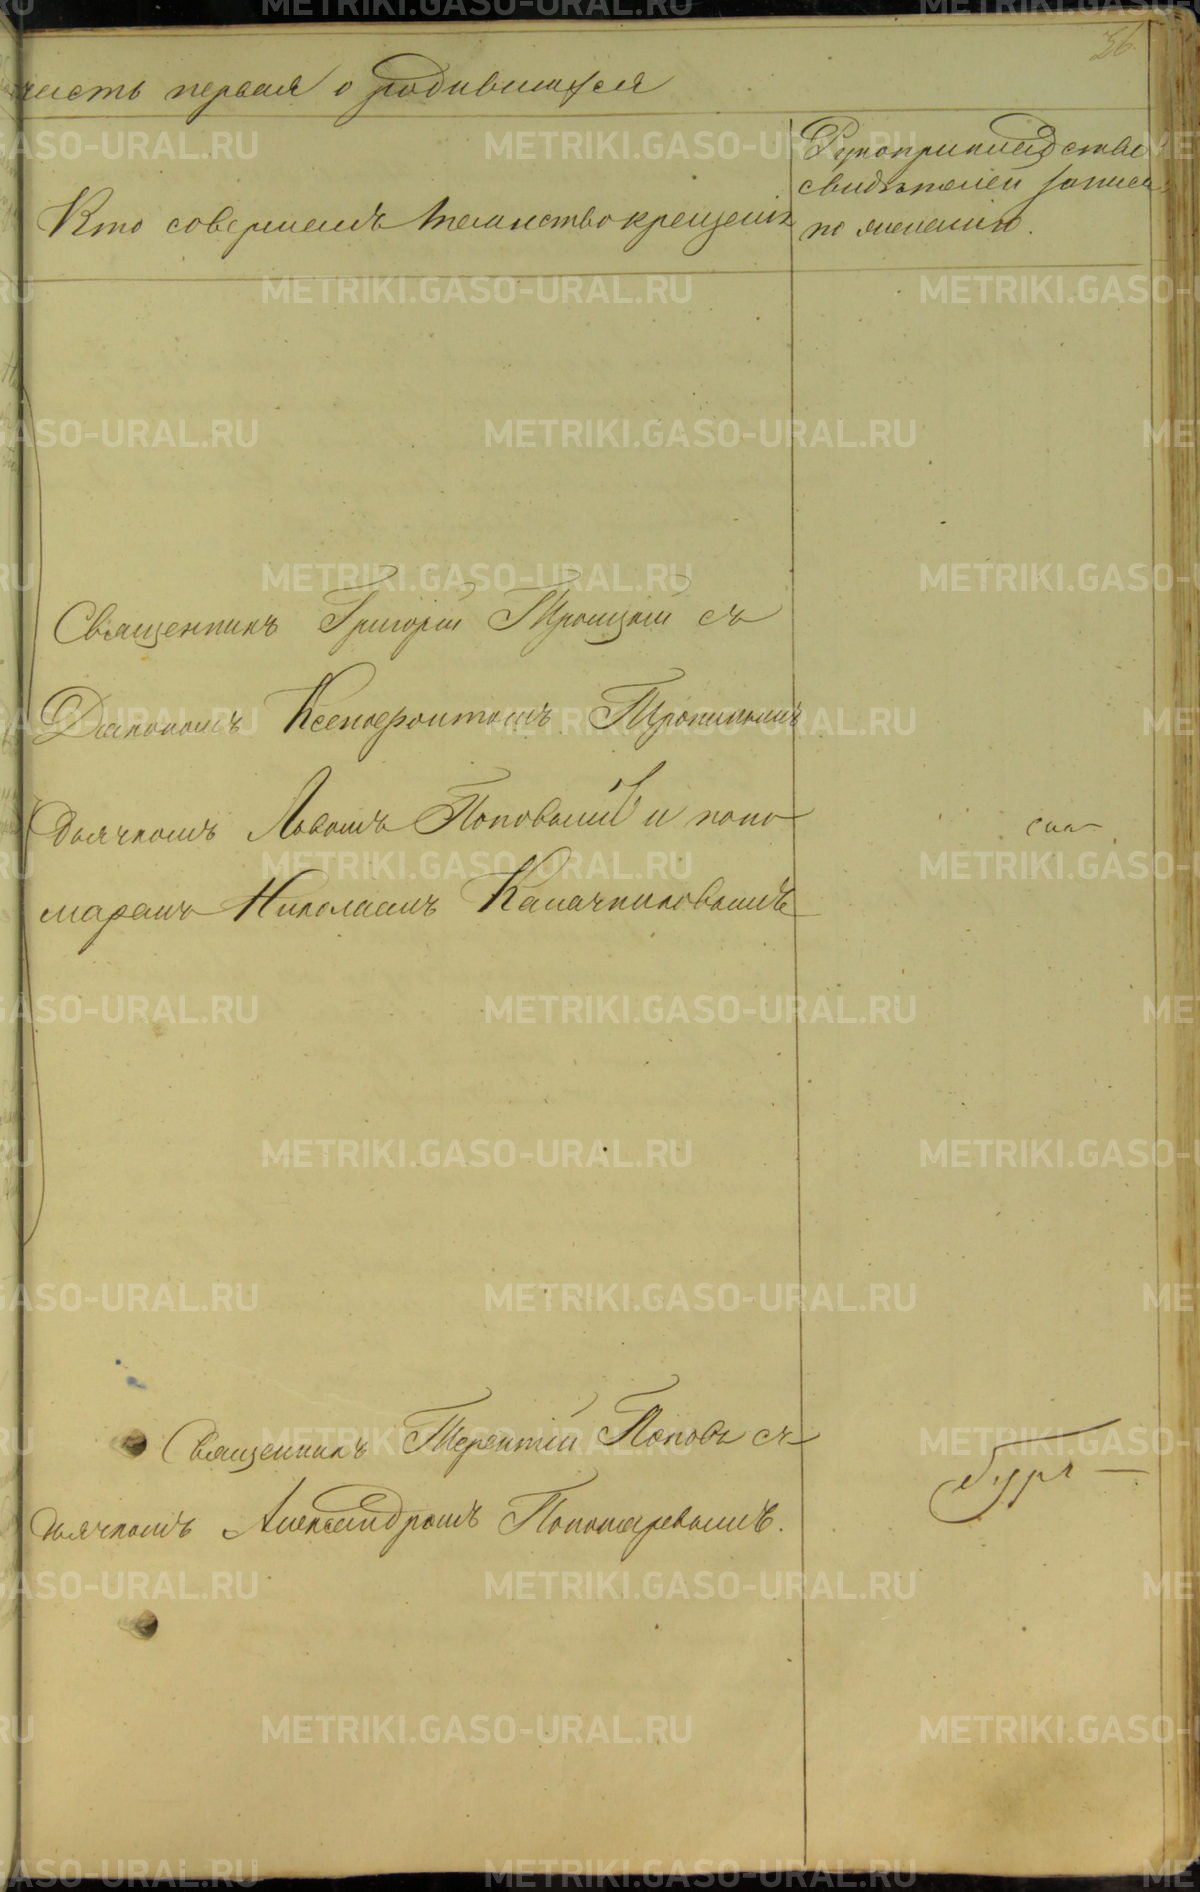 36
часть первая о родившихся
Кто совершалъ таинство крещенія
Рукоприкладство
свидѣтелей записи
по желанію.
Священникъ Григорій Троицкій съ
Діакономъ Ксенофонтомъ
дьячкомъ Львомъ Поповымъ и поно
маремъ Николаемъ Калачниковымъ
Священникъ Терентій Поповъ съ
дьячкомъ Александромъ Пономаревымъ.
METRIKI.GASO-URAL.RU